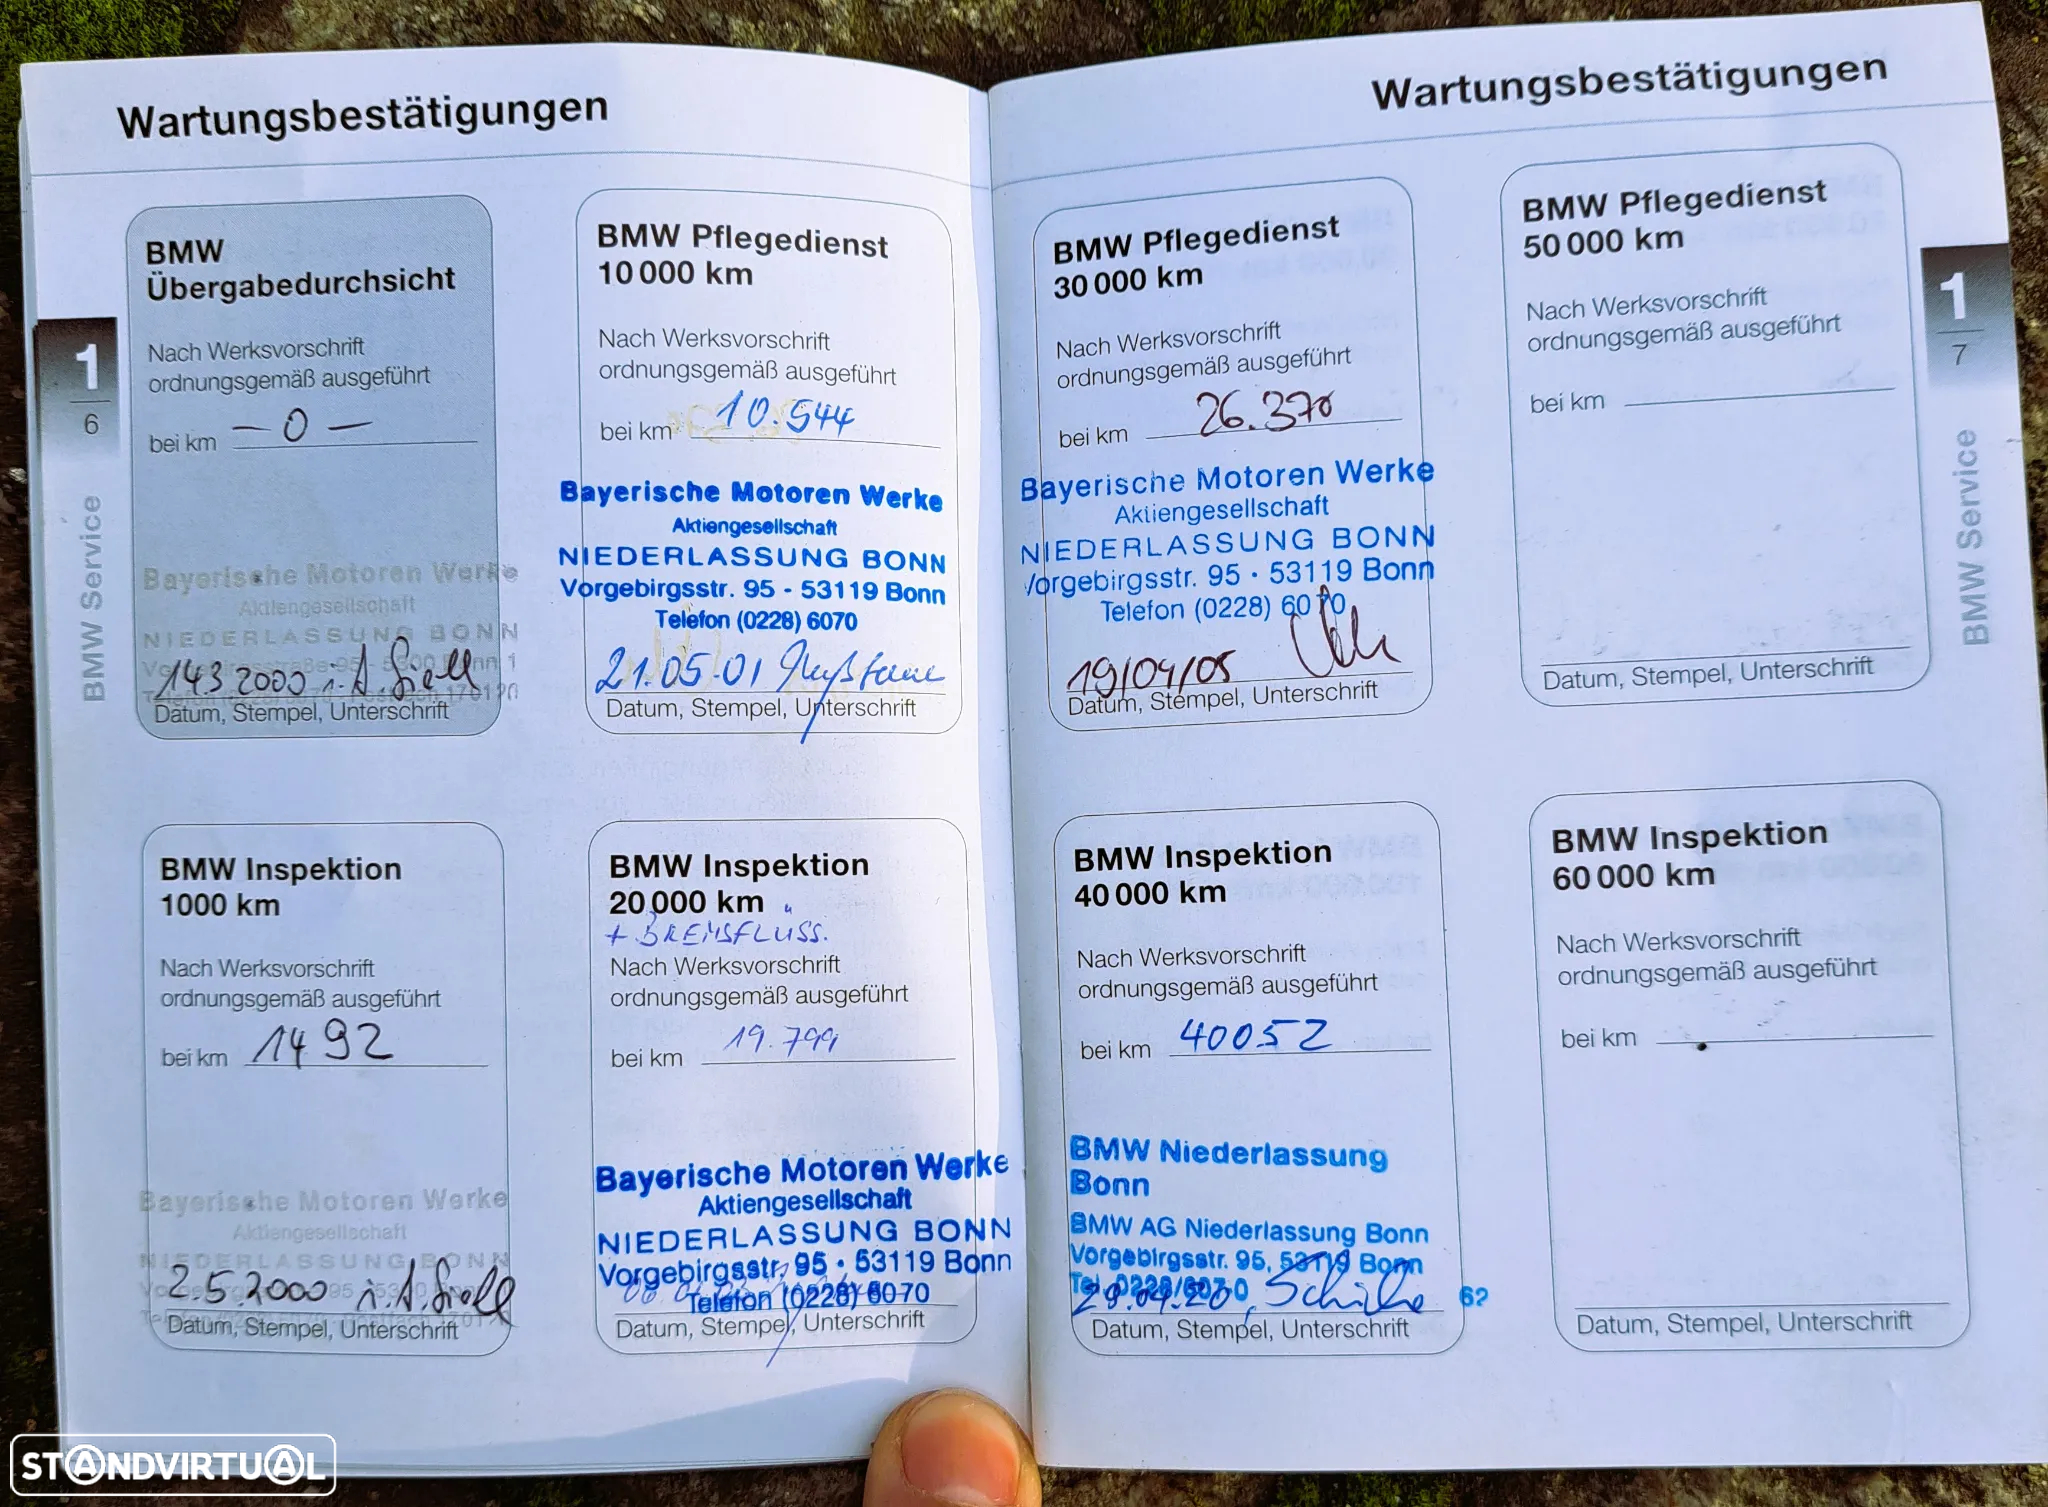 Wartungsbestätigungen
BMW
Übergabedurchsicht
Nach Werksvorschrift
ordnungsgemäß ausgeführt
bei km – 0 –
Bayerische Motoren Werke
Aktiengesellschaft
NIEDERLASSUNG BONN
14.3 2000 i.A
Datum, Stempel, Unterschrift
BMW Pflegedienst
10 000 km
Nach Werksvorschrift
ordnungsgemäß ausgeführt
bei km 10.544
Bayerische Motoren Werke
Aktiengesellschaft
NIEDERLASSUNG BONN
Vorgebirgsstr. 95 - 53119 Bonn
Telefon (0228) 6070
21.05.01
Datum, Stempel, Unterschrift
1
6
BMW Service
BMW Inspektion
1000 km
Nach Werksvorschrift
ordnungsgemäß ausgeführt
bei km 1492
Bayerische Motoren Werke
Aktiengesellschaft
NIEDERLASSUNG BONN
2.5.2000 i.A.
Datum, Stempel, Unterschrift
BMW Inspektion
20 000 km
+ BREMSFLÜSS.
Nach Werksvorschrift
ordnungsgemäß ausgeführt
bei km 19.799
Bayerische Motoren Werke
Aktiengesellschaft
NIEDERLASSUNG BONN
Vorgebirgsstr. 95 · 53119 Bonn
Telefon (0228) 6070
Datum, Stempel, Unterschrift
Wartungsbestätigungen
BMW Pflegedienst
30 000 km
Nach Werksvorschrift
ordnungsgemäß ausgeführt
bei km 26.370
Bayerische Motoren Werke
Aktiengesellschaft
NIEDERLASSUNG BONN
Vorgebirgsstr. 95 · 53119 Bonn
Telefon (0228) 6070
19/04/05
Datum, Stempel, Unterschrift
BMW Pflegedienst
50 000 km
Nach Werksvorschrift
ordnungsgemäß ausgeführt
bei km
Datum, Stempel, Unterschrift
1
7
BMW Service
BMW Inspektion
40 000 km
Nach Werksvorschrift
ordnungsgemäß ausgeführt
bei km 40052
BMW Niederlassung
Bonn
BMW AG Niederlassung Bonn
Vorgebirgsstr. 95, 53119 Bonn
Tel. 0228/607-0
29.04.20,
62
Datum, Stempel, Unterschrift
BMW Inspektion
60 000 km
Nach Werksvorschrift
ordnungsgemäß ausgeführt
bei km
Datum, Stempel, Unterschrift
STANDVIRTUAL